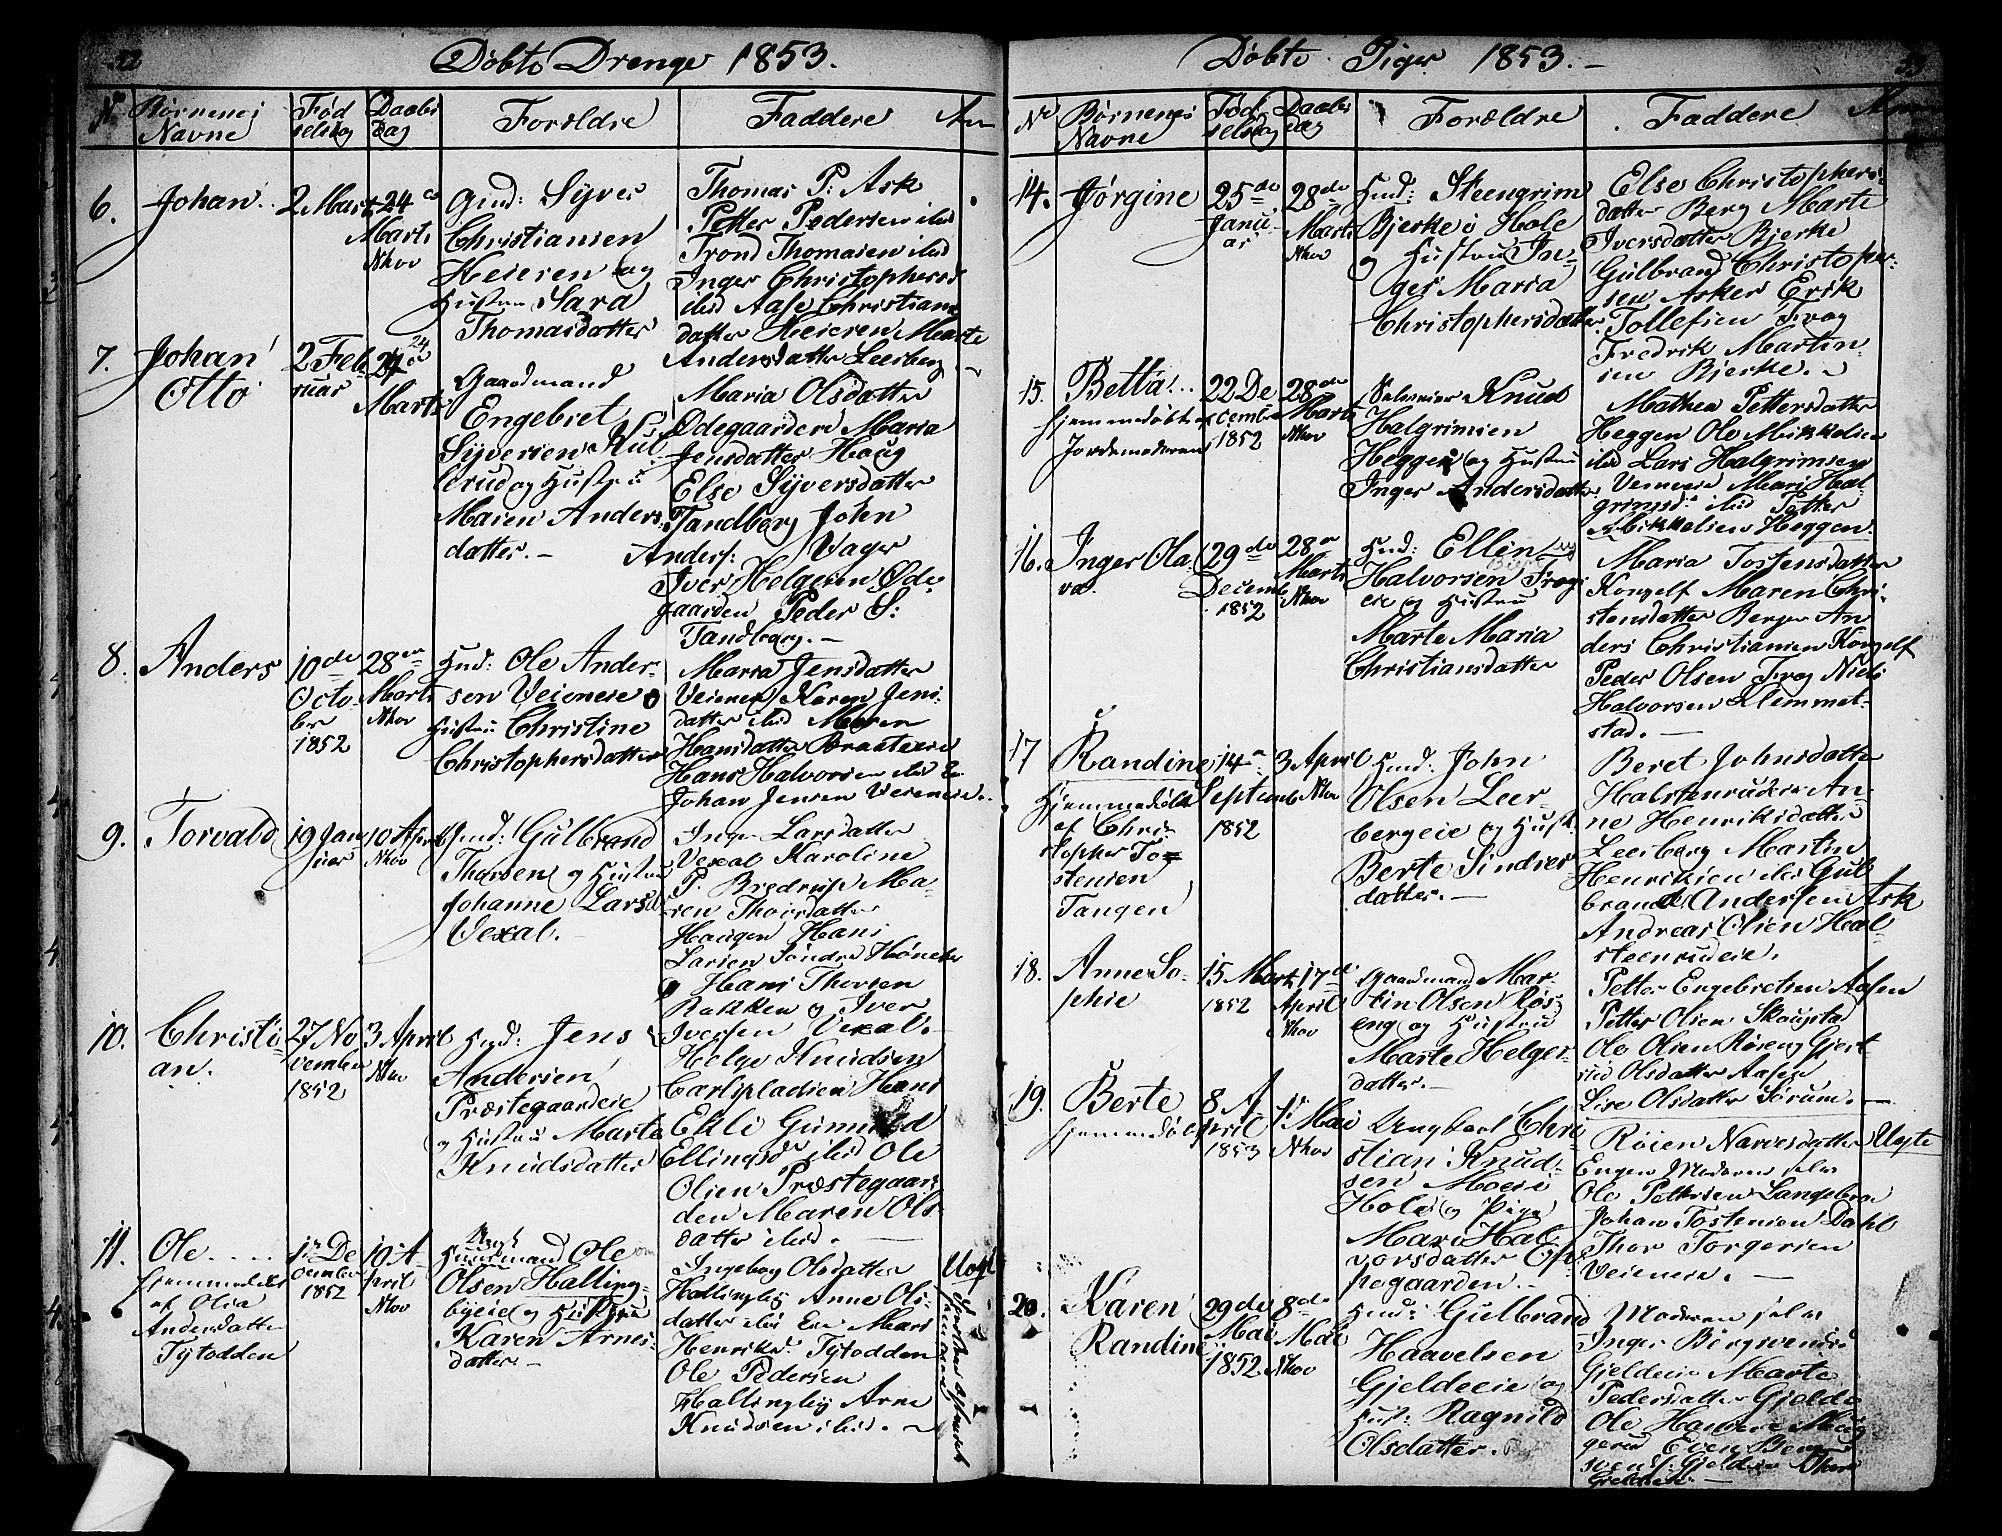 22
Døbte Drenge 1853.
N. Børnenes Navne
Fødselsdag
Daabs Dag
Forældre
Faddere
6.
Johan
2 Marts
24
Marts
Nhov
Gmd: Syver
Christiansen
Heieren og
Hustru Sara
Thomasdatter
Thomas P: Ask
Petter Pedersen ibid
Trond Thomasen ibid
Inger Christophersd
ibid Aase Christians
datter Heieren Marte
Andersdatter Leerberg
7.
Johan
Otto
2 Feb
ruar
24
Marts
Gaardmand
Engebret
Syversen
rud og Hustru
Maren Anders
datter.
Maria Olsdatter
Ødegaarden Maria
Jensdatter Haug
Else Syversdatter
Tandberg John
Anders: Vager
Iver Helgesen Øde
gaarden Peder S:
Tandberg.
8.
Anders
10de
Octo
ber
1852
28
Marts
Nhov
Hmd: Ole Ander-
sen Veieneie o
Hustru Christine
Christophersdatter
Maria Jensdatter
Veienen Karen Jens
datter ibid Maren
Hansdatter Braateeie
Hans Halvorsen ibid
Johan Jensen Veieneie.
9.
Torvald
19 Jan
uar
10 April
Nhov
Hmd: Gulbrand
Thorsen og Hustru
Johanne Larsd
Vexal.
Inger Larsdatter
Vexal Karoline
P: Bredrup Ma-
ren Thorsdatter
Haugen Hans
Larsen Søndre Hønen
Hans Thorsen
Rakken og Iver
Iversen Vexal.
10.
Christi
an.
27 No
vember
1852
3 April
Nhov
Hmd: Jens
Andersen
Præstegaardeie
og Hustru Marte
Knudsdatter
Helge Knudsen
Carlspladsen Hans
Ekli
Ellingsd ibid Ole
Olsen Præstegaar
den Maren Ols
datter ibid.
11.
Ole
hjemmedøbt
af Olia
Andersdatter
Tytodden
1 De
cember
1852
10 A
pril
Nhov
Huusmand Ole
Olsen Halling-
byeie og Hustru
Karen Arnes
datter.
Ingeborg Olsdatter
Hallingby Anne Ols
datter ibid Mari
Henriksd: Tytodden
Ole Pedersen
Hallingby Arne
Knudsen ibid.
23
Døbte Piger 1853.
Nr Børnenes Navne
Fødselsdag
Daabs Dag
Forældre
Faddere
14.
Jørgine
25de
Janu
ar
28de
Marts
Nhov
Hmd: Steengrim
Bjerke i Hole
og Hustru In-
ger Maria
Christophersdatter
Else Christophers-
datter Berg Marte
Iversdatter Bjerke
Gulbrand Christopher-
sen Asker Erik
Tollefsen Frog
Fredrik Martin-
sen Bjerke.
15.
Betta
hjemmedøbt af
Jordemoderen
22 De
cember
1852
28de
Marts
Nhov
Selveier Knud
Halgrimsen
Heggen og Hustru
Inger Andersdatter
Mathea Pettersdatter
Heggen Ole Mikkelsen
ibid Lars Halgrimsen
Mari Hal
grimsd: ibid Petter
Mikkelsen Heggen.
16.
Inger Ola
va.
29de
Decemb
1852
28
Marts
Nhov
Hmd: Ellin
Halvorsen Frog
eie og Hustru
Marte Maria
Christiansdatter
Maria Tostensdatter
Korself Maren Chri-
stensdatter Berger An
ders Christiansen Korself
Peder Olsen Frog Niels
Halvorsen Klemmet-
stad.
17
Randine
Hjemmedøbt
af Chri-
stopher To
stensen
Tangen
14
Septemb
1852
3 April
Nhov
Hmd: John
Olsen Leer-
bergeie og Hust
Berte Sindrer
datter.
Beret Johnsdatter
Halstenrudeie An-
ne Henriksdatter
Leerberg Martin
Henriksen ibid Gul
brand Andersen Ask
Andreas Olsen Hal
steenrudeie.
18.
Anne So-
phie
15 Mart
1852
17de
April
Nhov
Gaardmand Mar-
tin Olsen Røs
eng og Hustru
Marte Helger-
datter.
Petter Engebretsen Aasen
Petter Olsen Skougstad
Ole Olsen Røseng Gjert
Olsdatter Aasen
Lise Olsdatter Sørum.
19.
Berte
hjemmedøbt
8 A
pril
1853
1 Mai
Nhov
Ungkarl Chri-
stian Knud-
sen Moeie
Hole og Pige
Mari Hal
vorsdatter
pegaarden.
Røien Narvesdatter
Engen Moderen selv
Ole Pettersen Langebro
Johan Tostensen Dahl
Thor Torgersen
Veieneie.
Uægte
20.
Karen
Randine
29de
Mai
1852
8de
Mai
Nhov
Hmd: Gulbrand
Haavelsen
Gjeldeeie og
Hust: Ragnild
Olsdatter.
Moderen selv
Inger Bergsvends
Gjeldeie Marte
Pedersdatter Gjelde
Ole Hansen
Gjeldeie